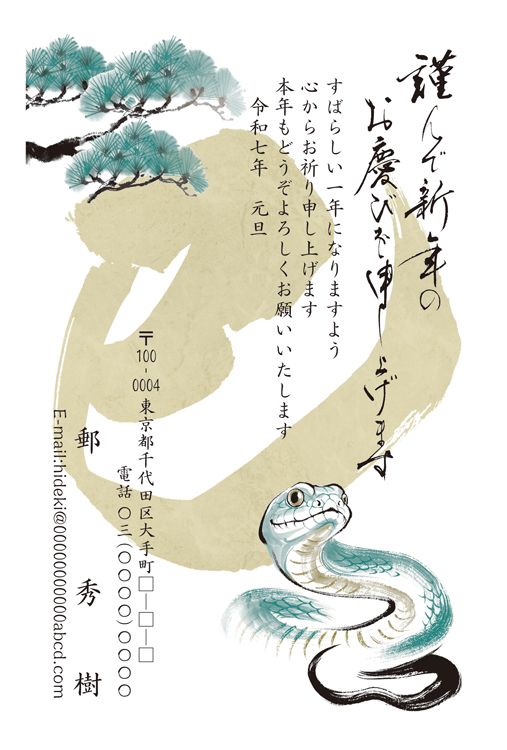 謹んで新年の
お慶びを申し上げます
すばらしい一年になりますよう
心からお祈り申し上げます
本年もどうぞよろしくお願いいたします
令和七年　元旦
〒100-0004 東京都千代田区大手町□－□－□
電話 〇三(〇〇〇〇)〇〇〇〇
郵　秀　樹
E-mail:hideki@000000000000abcd.com